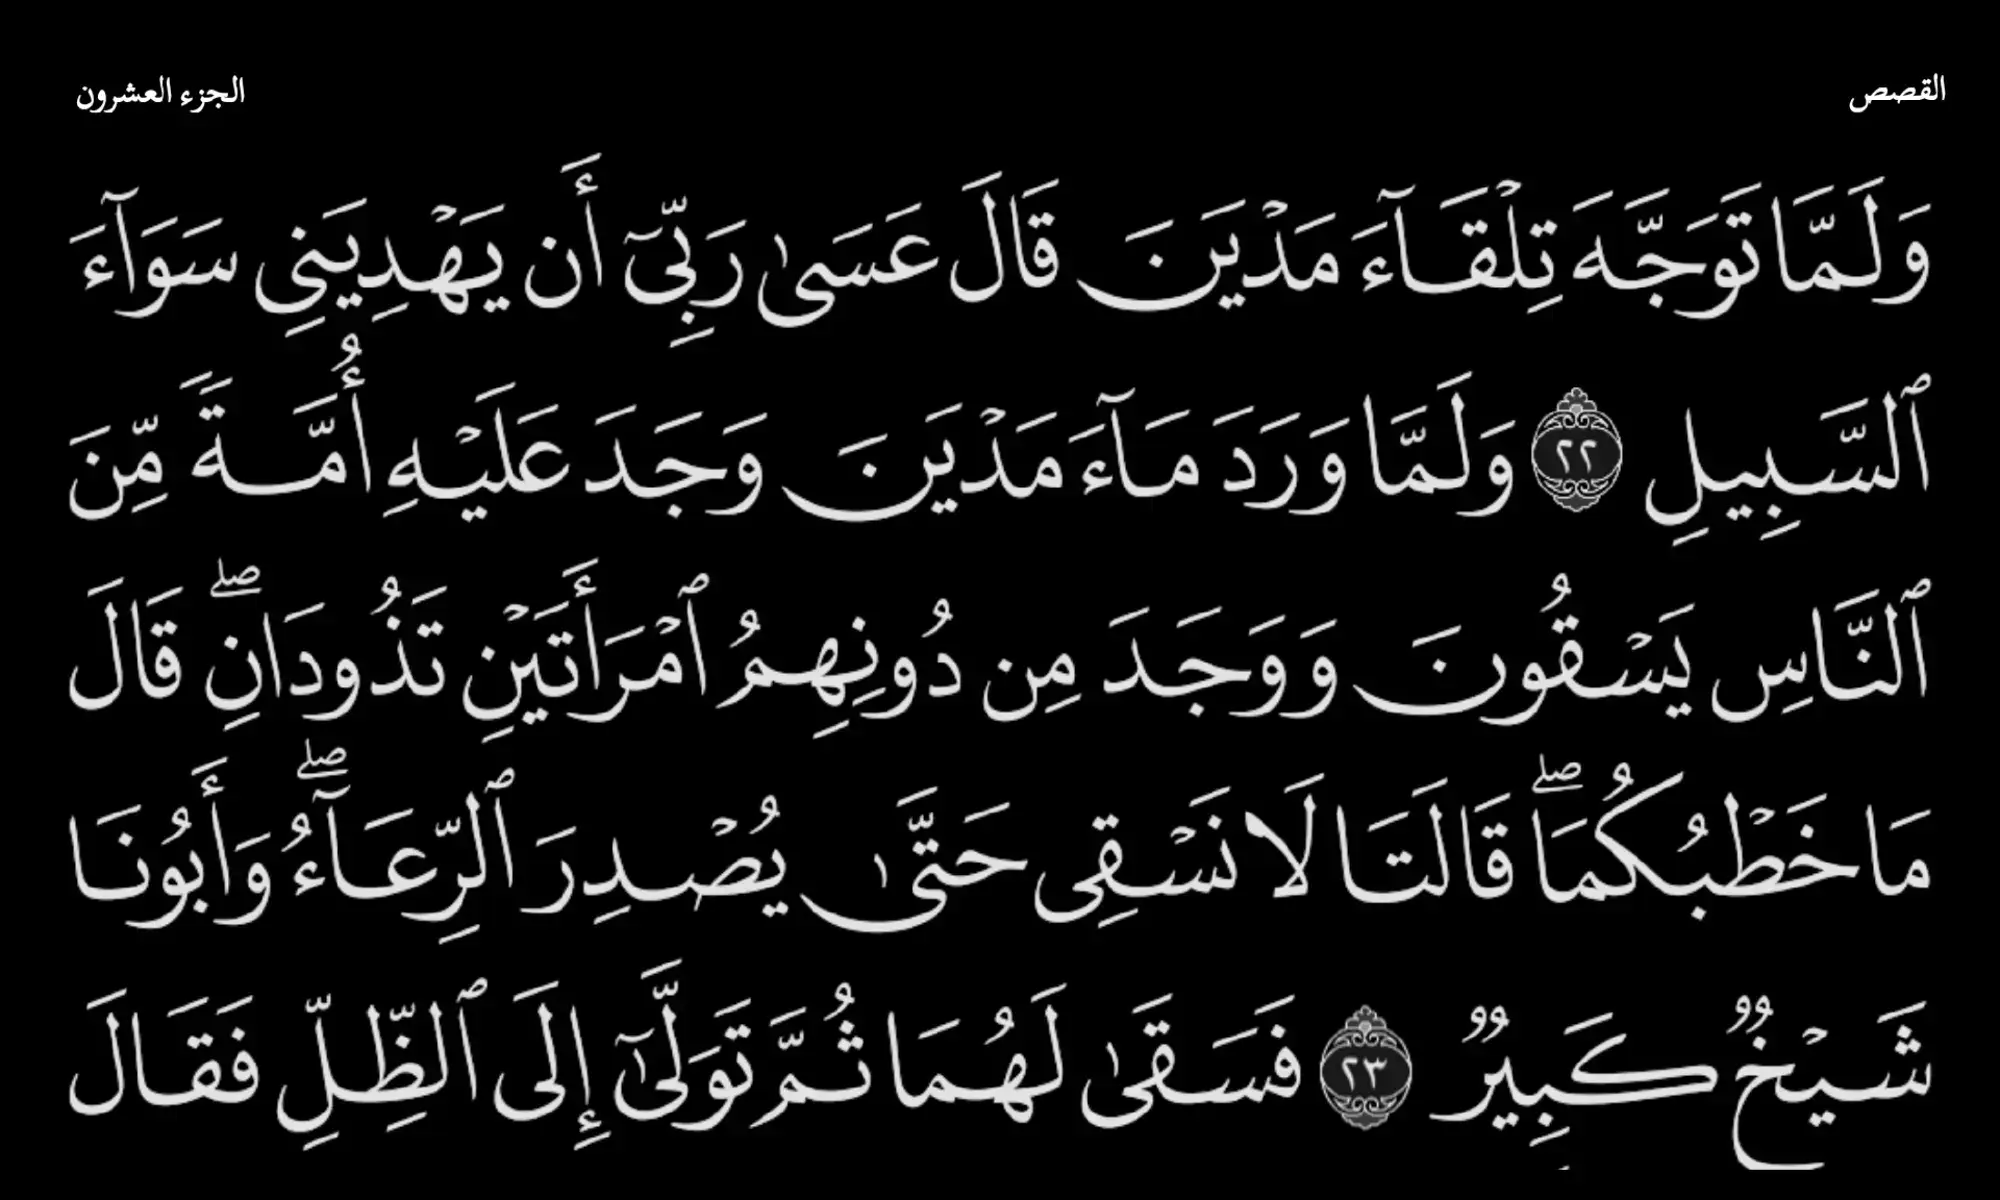 القصص
الجزء العشرون
وَلَمَّا تَوَجَّهَ تِلْقَآءَ مَدْيَنَ قَالَ عَسَىٰ رَبِّىٓ أَن يَهْدِيَنِى سَوَآءَ
ٱلسَّبِيلِ ٢٢ وَلَمَّا وَرَدَ مَآءَ مَدْيَنَ وَجَدَ عَلَيْهِ أُمَّةً مِّنَ
ٱلنَّاسِ يَسْقُونَ وَوَجَدَ مِن دُونِهِمُ ٱمْرَأَتَيْنِ تَذُودَانِ ۖ قَالَ
مَا خَطْبُكُمَا ۖ قَالَتَا لَا نَسْقِى حَتَّىٰ يُصْدِرَ ٱلرِّعَآءُ ۖ وَأَبُونَا
شَيْخٌ كَبِيرٌ ٢٣ فَسَقَىٰ لَهُمَا ثُمَّ تَوَلَّىٰٓ إِلَى ٱلظِّلِّ فَقَالَ